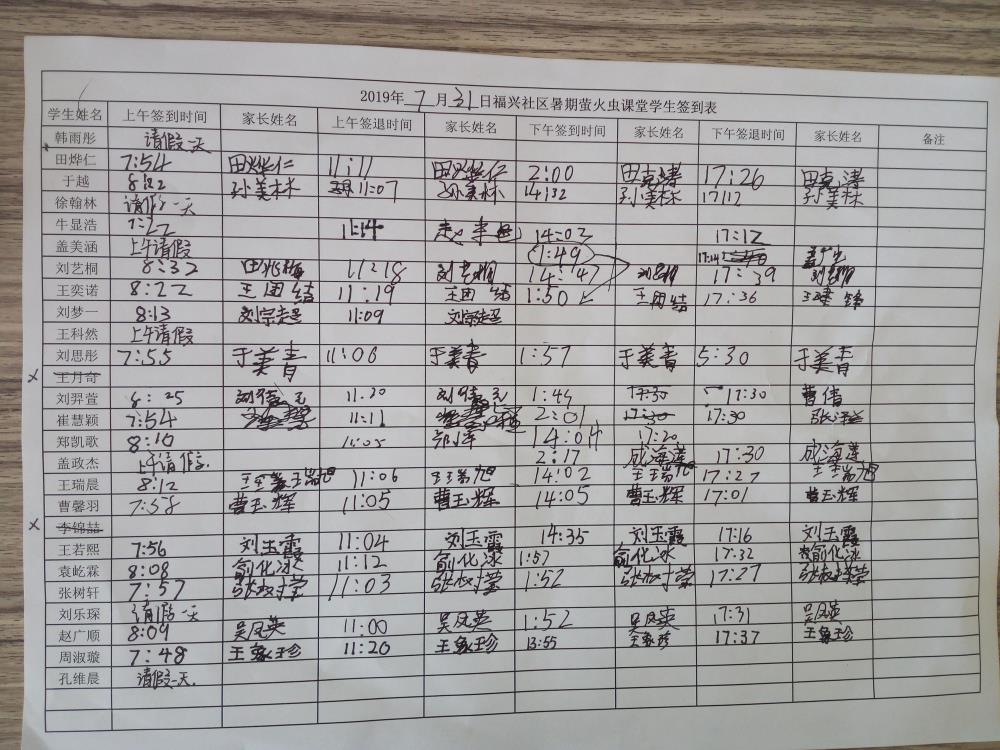 2019年7月31日福兴社区暑期萤火虫课堂学生签到表
学生姓名 上午签到时间 家长姓名 上午签退时间 家长姓名 下午签到时间 家长姓名 下午签退时间 家长姓名 备注
韩雨彤 请假一天
田烨仁 7:54 田烨仁 11:11 田烨仁 2:00 田克涛 17:26 田克涛
于越 8:22 孙美林 11:07 孙美林 14:32 孙美林 17:12 孙美林
徐翰林 请假一天
牛显浩 7:22 11:14 14:02 17:12
盖美涵 上午请假 1:49
刘艺桐 8:32 11:18 刘艺桐 14:47 刘艺桐 17:39 刘艺桐
王奕诺 8:22 王团结 11:19 王团结 1:50 王团结 17:36
刘梦一 8:13 刘宗超 11:09 刘宗超
王科然 上午请假
刘思彤 7:55 于美青 11:06 于美青 1:57 于美青 5:30 于美青
王月奇
刘羿萱 8:25 11:20 1:44 17:30 17:30 曹倩
崔慧颖 7:54 11:11 2:01 17:30 17:30
郑凯歌 8:10 11:05 14:04 17:20
盖政杰 上午请假 2:17 成海莲 17:30 成海莲
王瑞晨 8:12 王瑞旭 11:06 王瑞旭 14:02 王瑞旭 17:27 王瑞旭
曹馨羽 7:58 曹玉辉 11:05 曹玉辉 14:05 曹玉辉 17:01 曹玉辉
李锦喆
王若熙 7:56 刘玉霞 11:04 刘玉霞 14:35 刘玉霞 17:16 刘玉霞
袁屹霖 8:08 俞化冰 11:12 俞化冰 1:57 俞化冰 17:32 俞化冰
张树轩 7:57 11:03 1:52 17:27
刘乐琛 请假一天
赵广顺 8:09 吴凤英 11:00 吴凤英 1:52 吴凤英 17:31 吴凤英
周淑璇 7:48 王家珍 11:20 王家珍 13:55 王家珍 17:37 王家珍
孔维晨 请假一天.